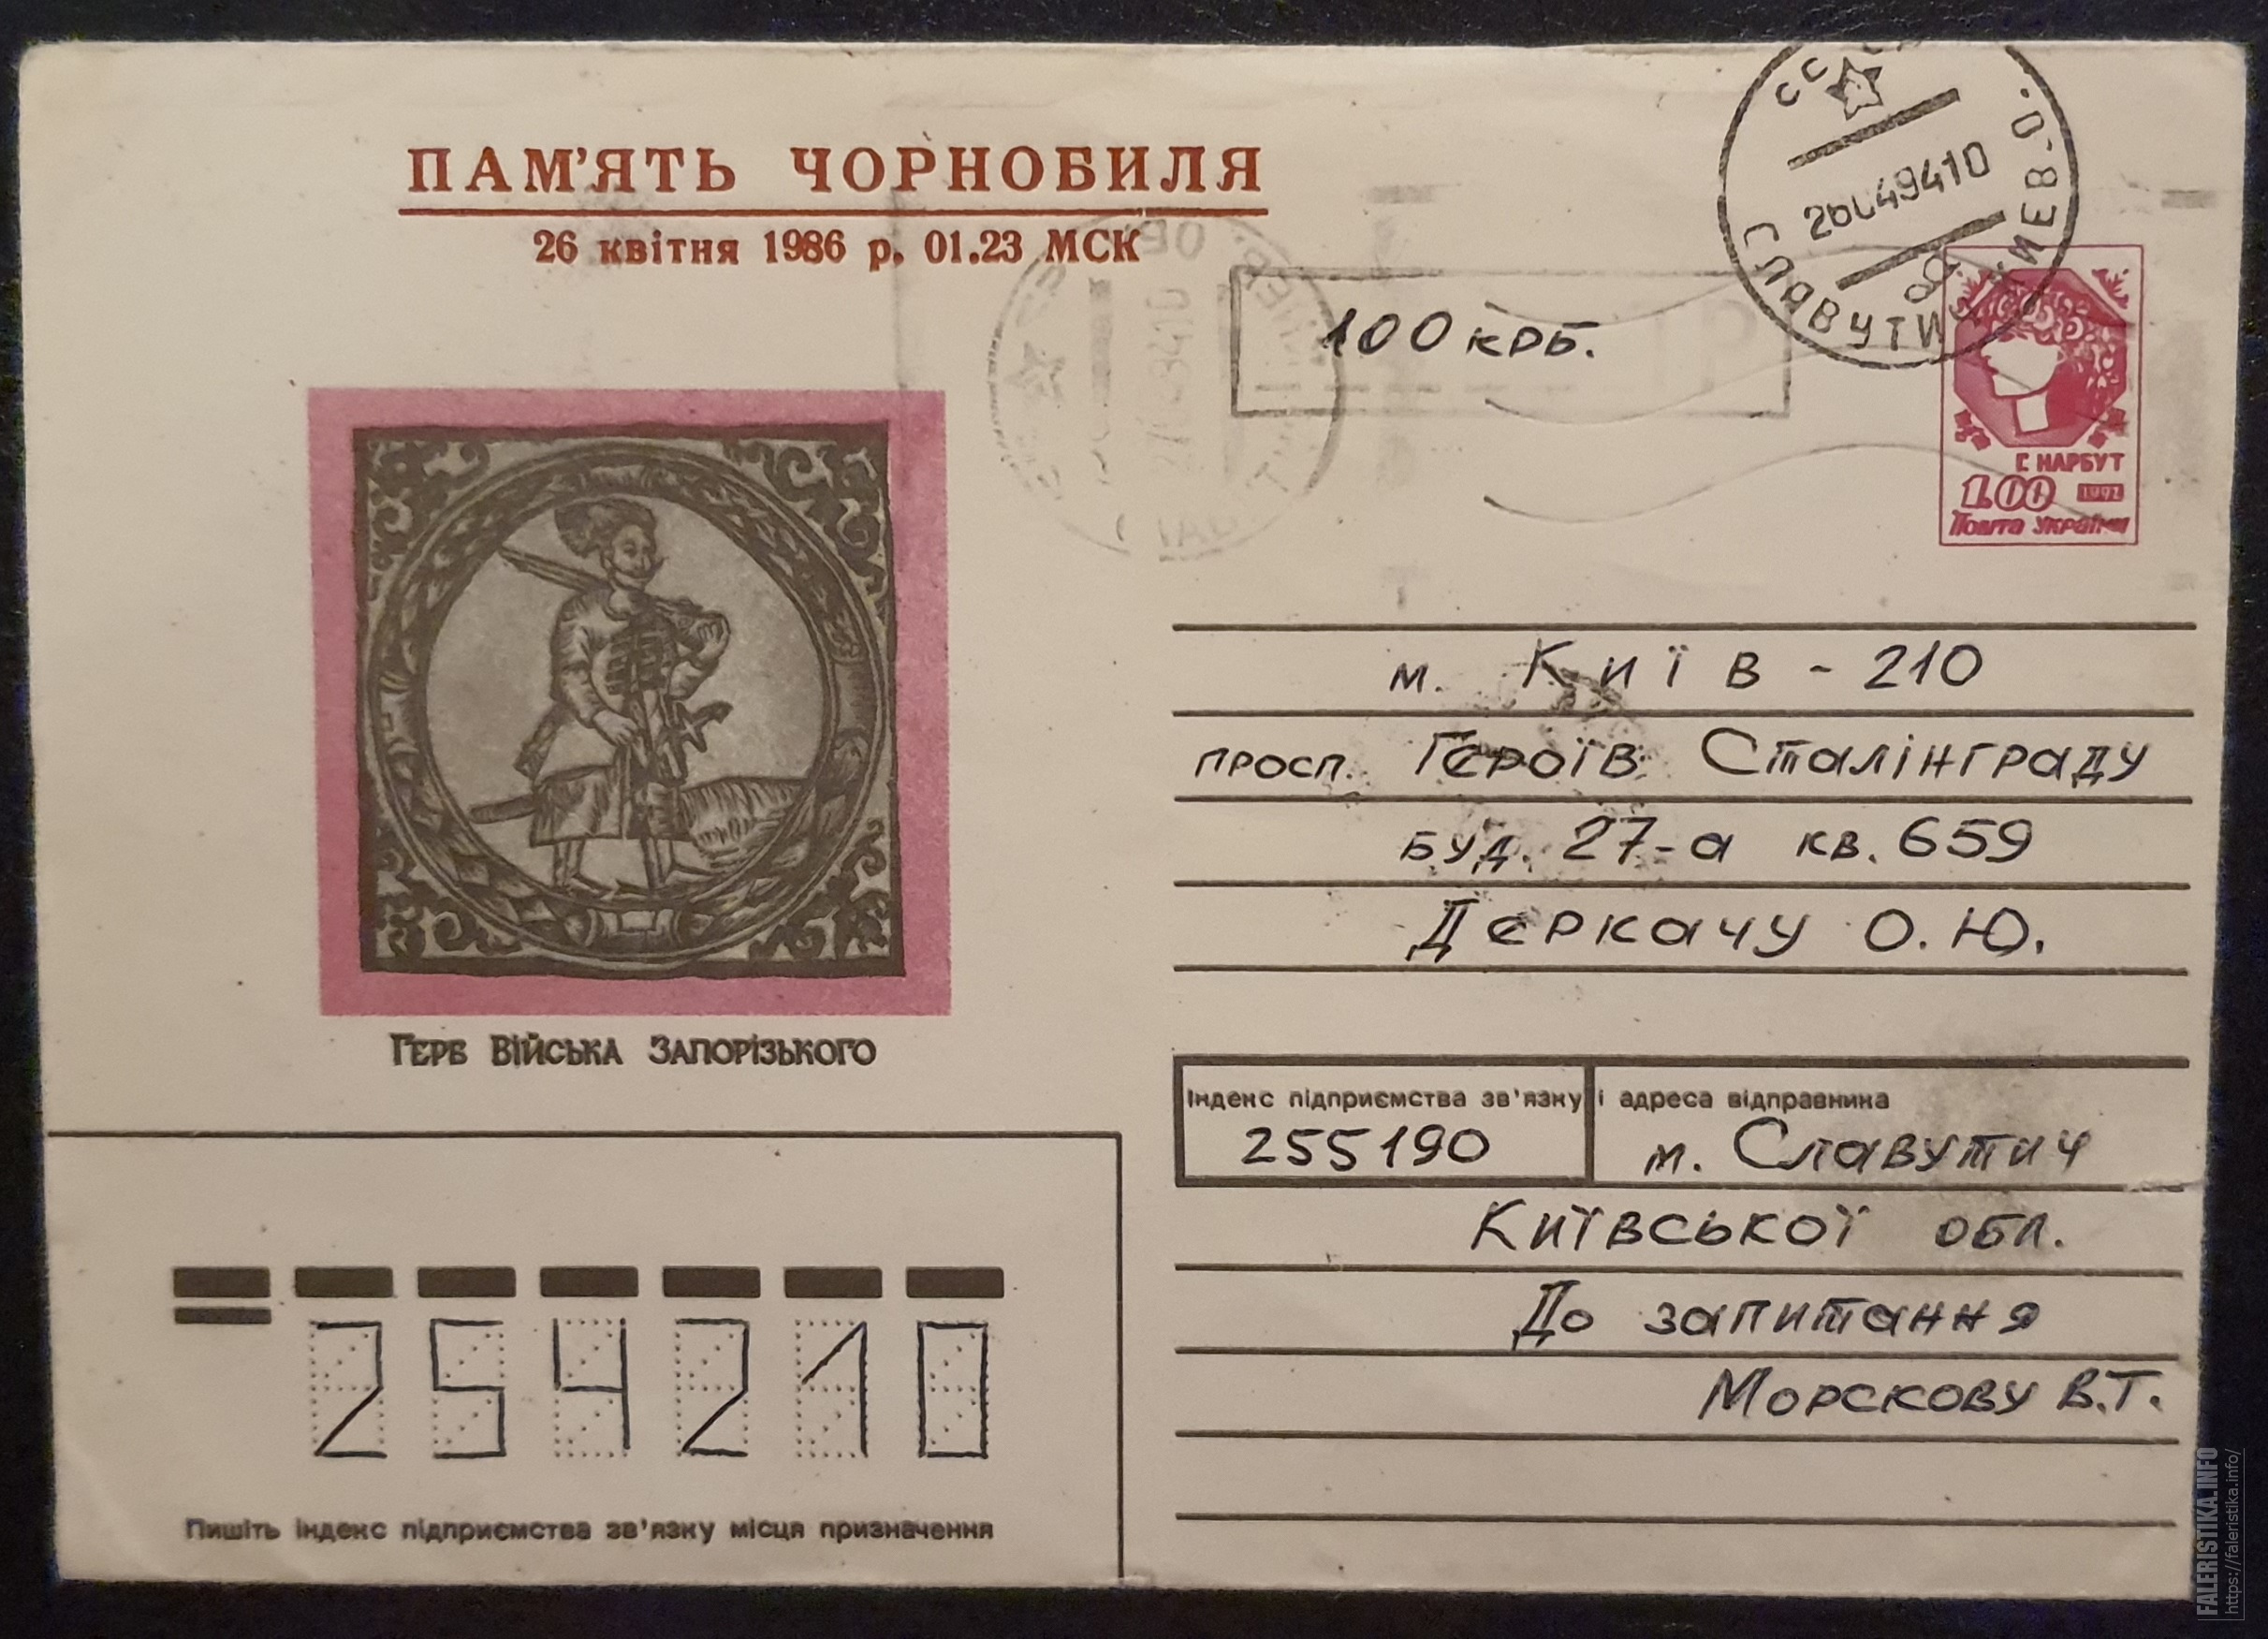 ПАМ'ЯТЬ ЧОРНОБИЛЯ
26 квітня 1986 р. 01.23 МСК
26049410
СЛАВУТИЧ КИЕВ-О.
100 крб.
Г. НАРБУТ
1.00 1992
Пошта України
Герб Війська Запорізького
м. Київ - 210
просп. Героїв Сталінграду
буд. 27-а кв. 659
Деркачу О.Ю.
Індекс підприємства зв'язку і адреса відправника
255190 м. Славутич
Київської обл.
До запитання
Морскову В.Т.
254210
Пишіть індекс підприємства зв'язку місця призначення
FALERISTIKA.INFO
https://faleristika.info/